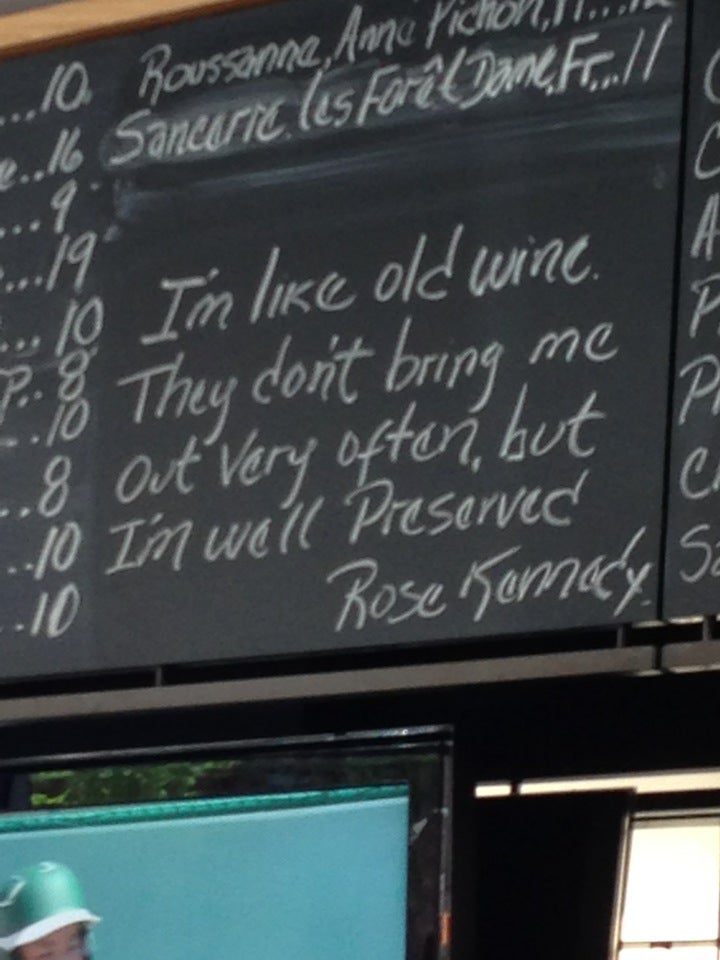 ...10
Roussanne, Anne Pichon, Fr...12
e..16
Sancerre, Les Forêt Dame, Fr...11
...9
...19
I'm like old wine.
...10
They don't bring me
P.. 8
..10
Out Very often, but
..8
I'm well Preserved
..10
Rose Kennedy.
..10